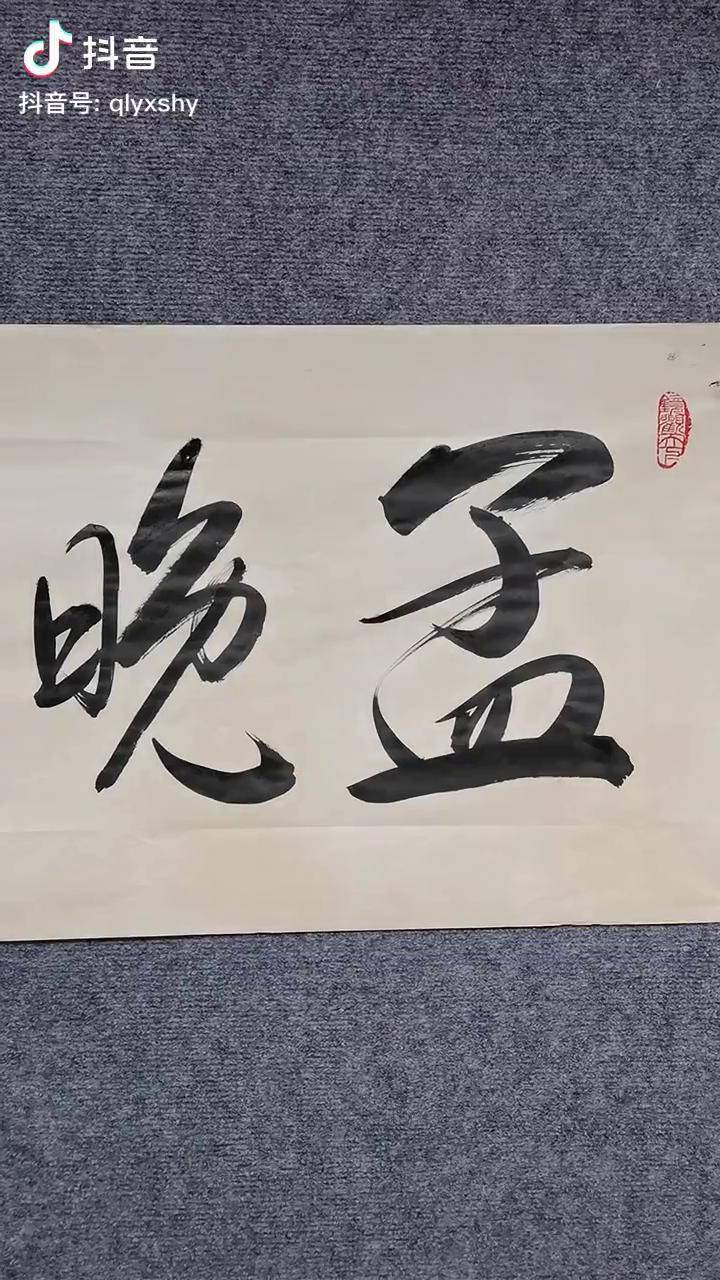 抖音
抖音号: qlyxshy
孟晚